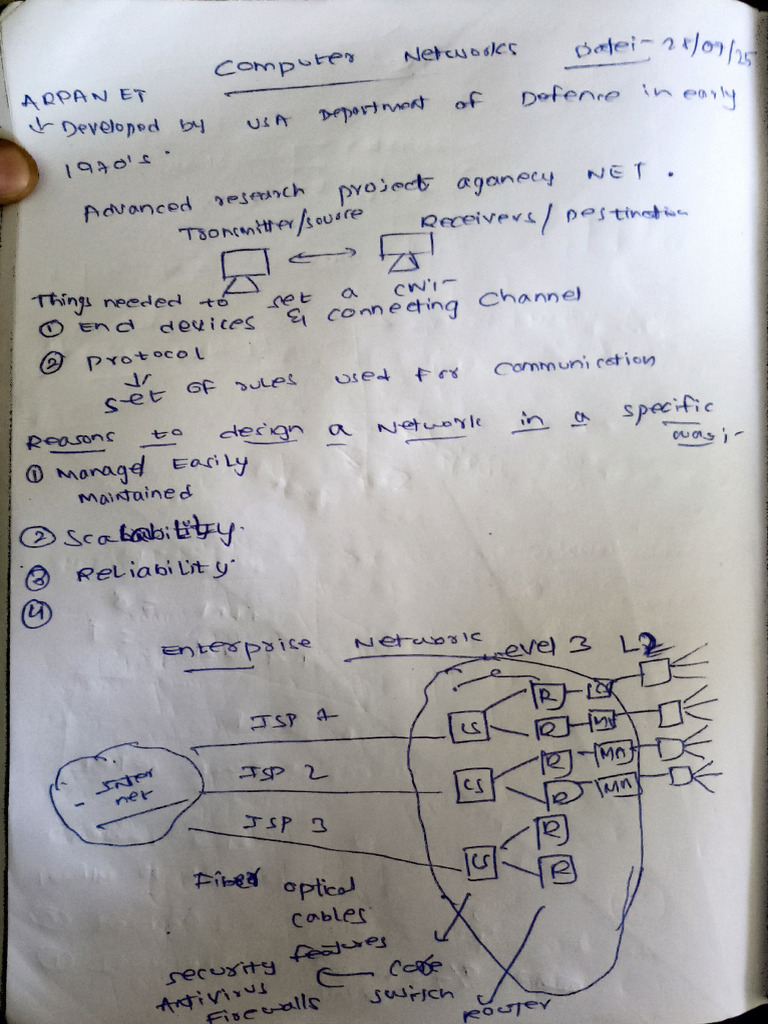 Computer Networks Date:- 28/07/25
ARPANET
↳ Developed by USA Department of Defence in early
1970's.
Advanced research project aganecy NET.
Transmitter/source Receivers/Destination
Things needed to set a CN:-
① End devices & connecting channel
② Protocol
set of rules used for communication
Reasons to design a Network in a specific
was;-
① Managed Easily
Maintained
② Scalability.
③ Reliability.
④
Enterprise Network Level 3 L2
ISP 1 CS R
R
Internet ISP 2 CS R MN
R MN
ISP 3 CS R
R
Fiber optical
cables
security features core
Antivirus switch
Firewalls router